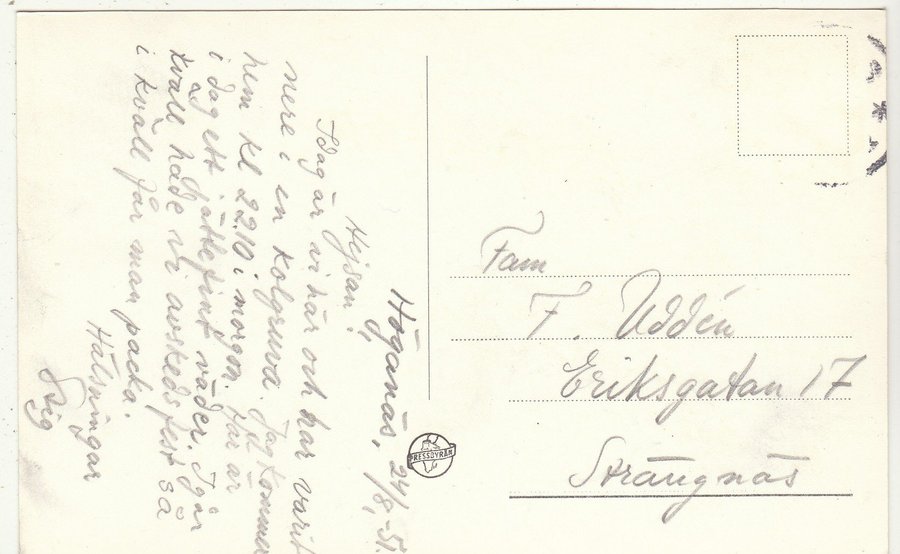 Höganäs, 24/8-51.
Hejsan!
Idag är vi här och har varit
nere i en kolgruva. Jag kommer
hem kl 22.10 i morgon. Här är
i dag ett jättefint väder. Igår
kväll hade vi avskedsfest så
i kväll får man packa.
Hälsningar
Stig
PRESSBYRÅN
Fam
F. Uddén
Eriksgatan 17
Strängnäs